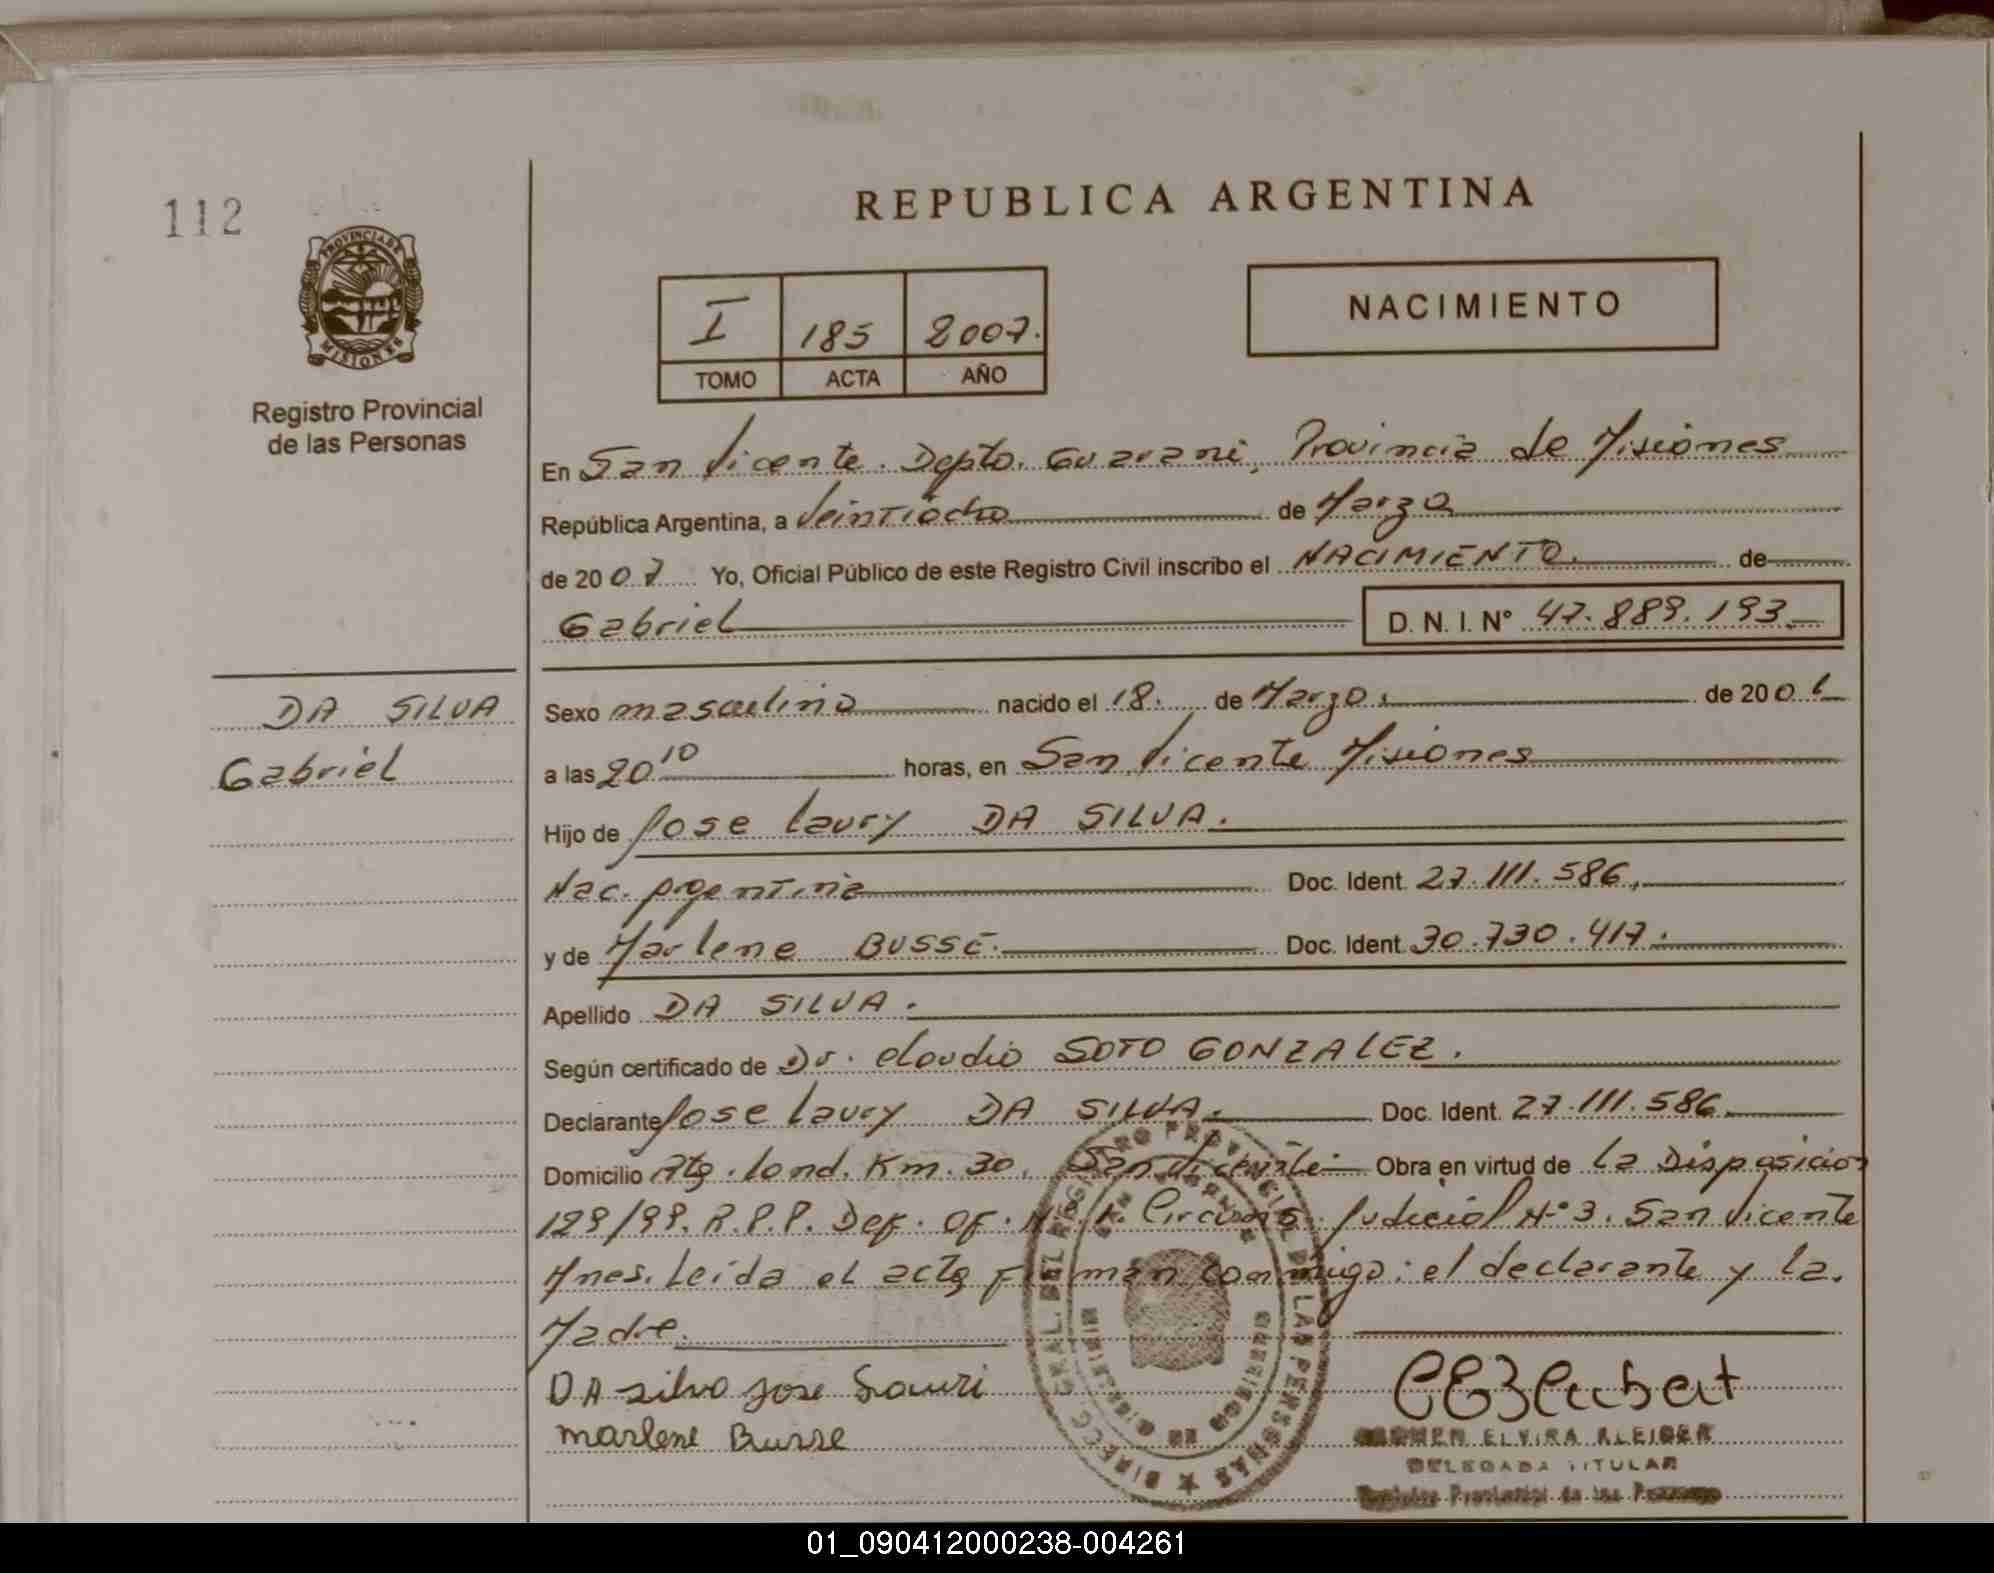 112
PROVINCIA DE
MISIONES
Registro Provincial
de las Personas
REPUBLICA ARGENTINA
I 185 2007.
TOMO ACTA AÑO
NACIMIENTO
En San Vicente. Depto. Guarani, Provincia de Misiones
República Argentina, a Veintiocho de Marzo
de 2007 Yo, Oficial Público de este Registro Civil inscribo el NACIMIENTO. de
Gabriel D. N. I. N° 47.889.193.
DA SILVA
Gabriel
Sexo masculino nacido el 18. de Marzo. de 200
a las 20 10 horas, en San Vicente Misiones
Hijo de Jose Laury DA SILVA.
Nac. Argentina Doc. Ident. 27.111.586.
y de Marlene BUSSE. Doc. Ident. 30.730.417.
Apellido DA SILVA.
Según certificado de Dr. Claudio SOTO GONZALEZ.
Declarante Jose Laury DA SILVA. Doc. Ident. 27.111.586.
Domicilio Rta. Lond. Km. 30. San Vicente Obra en virtud de La Disposicion
129/99. R.P.P. Def. Of. N° 1. Circuns. Judicial N° 3. San Vicente
Mnes. Leida el acta firman conmigo: el declarante y la
Madre.
DA silva Jose Lauri
Marlene Busse
DIRECC. GRAL. DEL REGISTRO PROVINCIAL DE LAS PERSONAS
CARMEN ELVIRA KLEIBER
DELEGADA TITULAR
Registro Provincial de las Personas
01_090412000238-004261